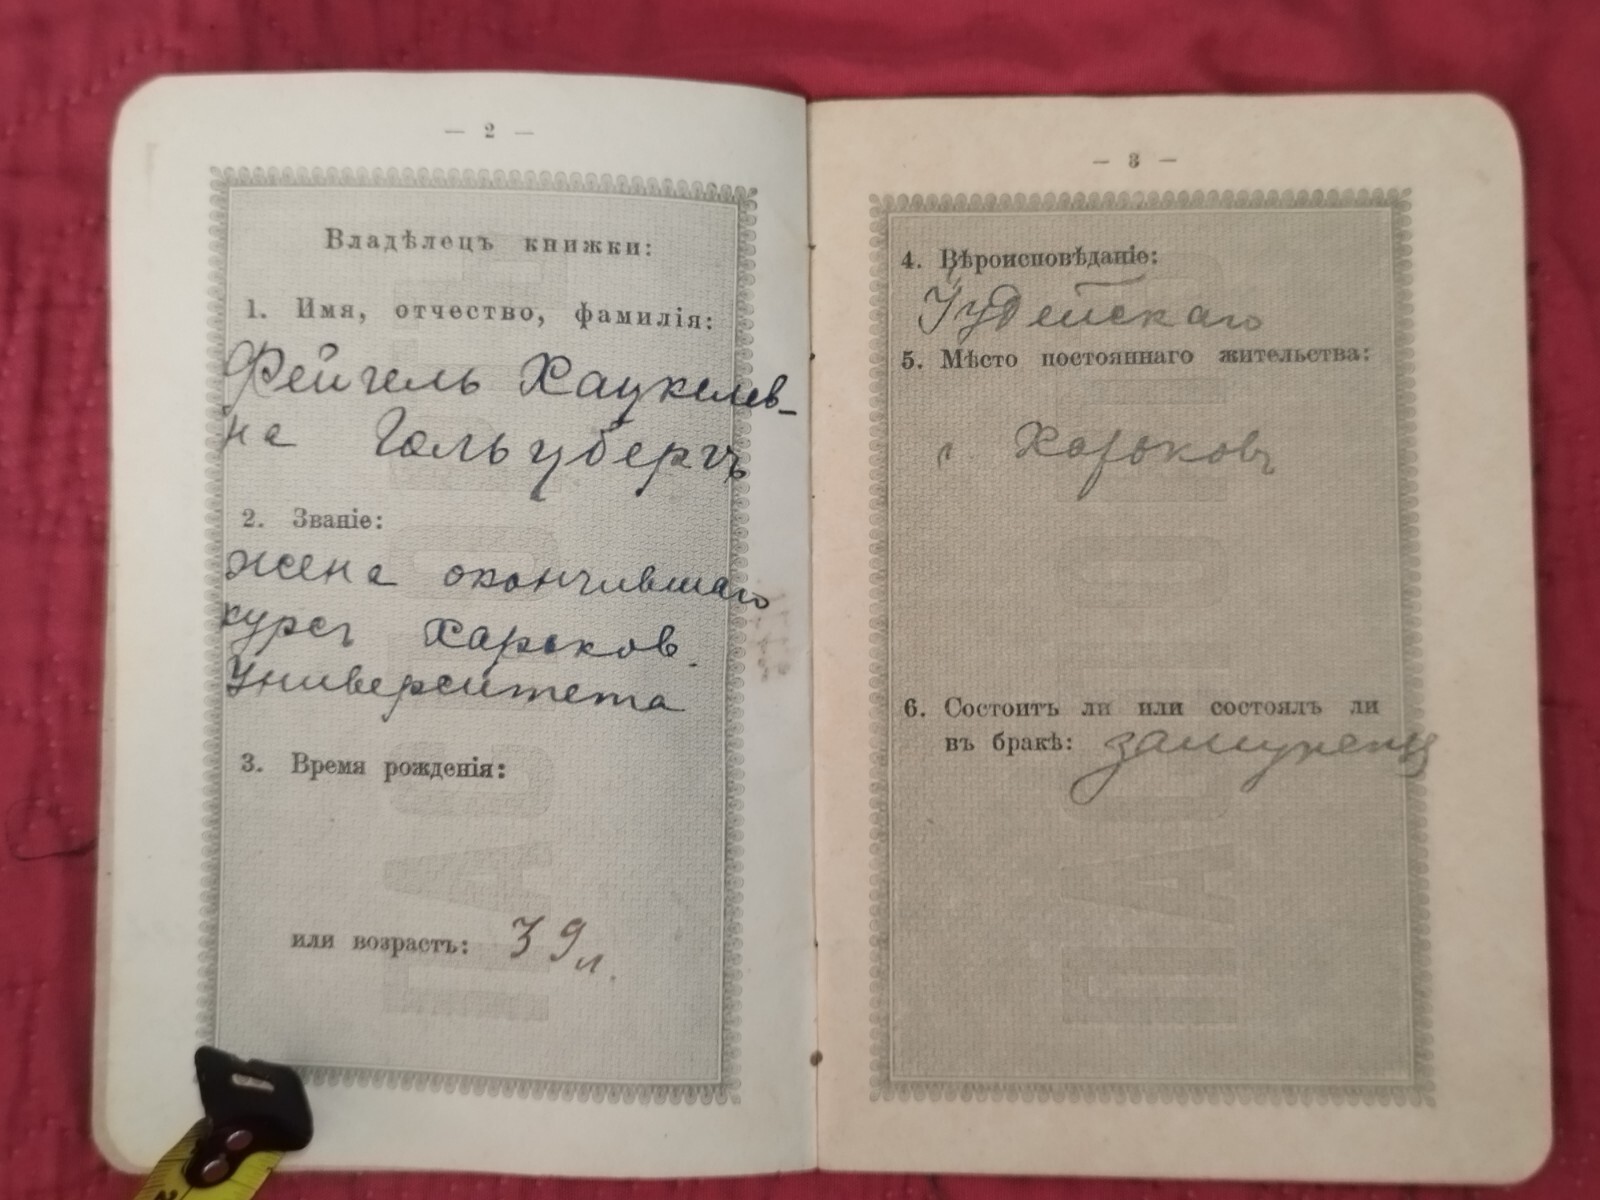 — 2 —
Владѣлецъ книжки:
1. Имя, отчество, фамилія:
Фейгель Хацкелев-
на Гольцбергъ
2. Званіе:
жена окончившаго
курсъ Харьков.
Университета
3. Время рожденія:
или возрастъ: 39 л.
— 3 —
4. Вѣроисповѣданіе:
Іудейскаго
5. Мѣсто постояннаго жительства:
г Харьковъ
6. Состоитъ ли или состоялъ ли
въ бракѣ: замужемъ
ПАСПОРТЪ
ПАСПОРТЪ